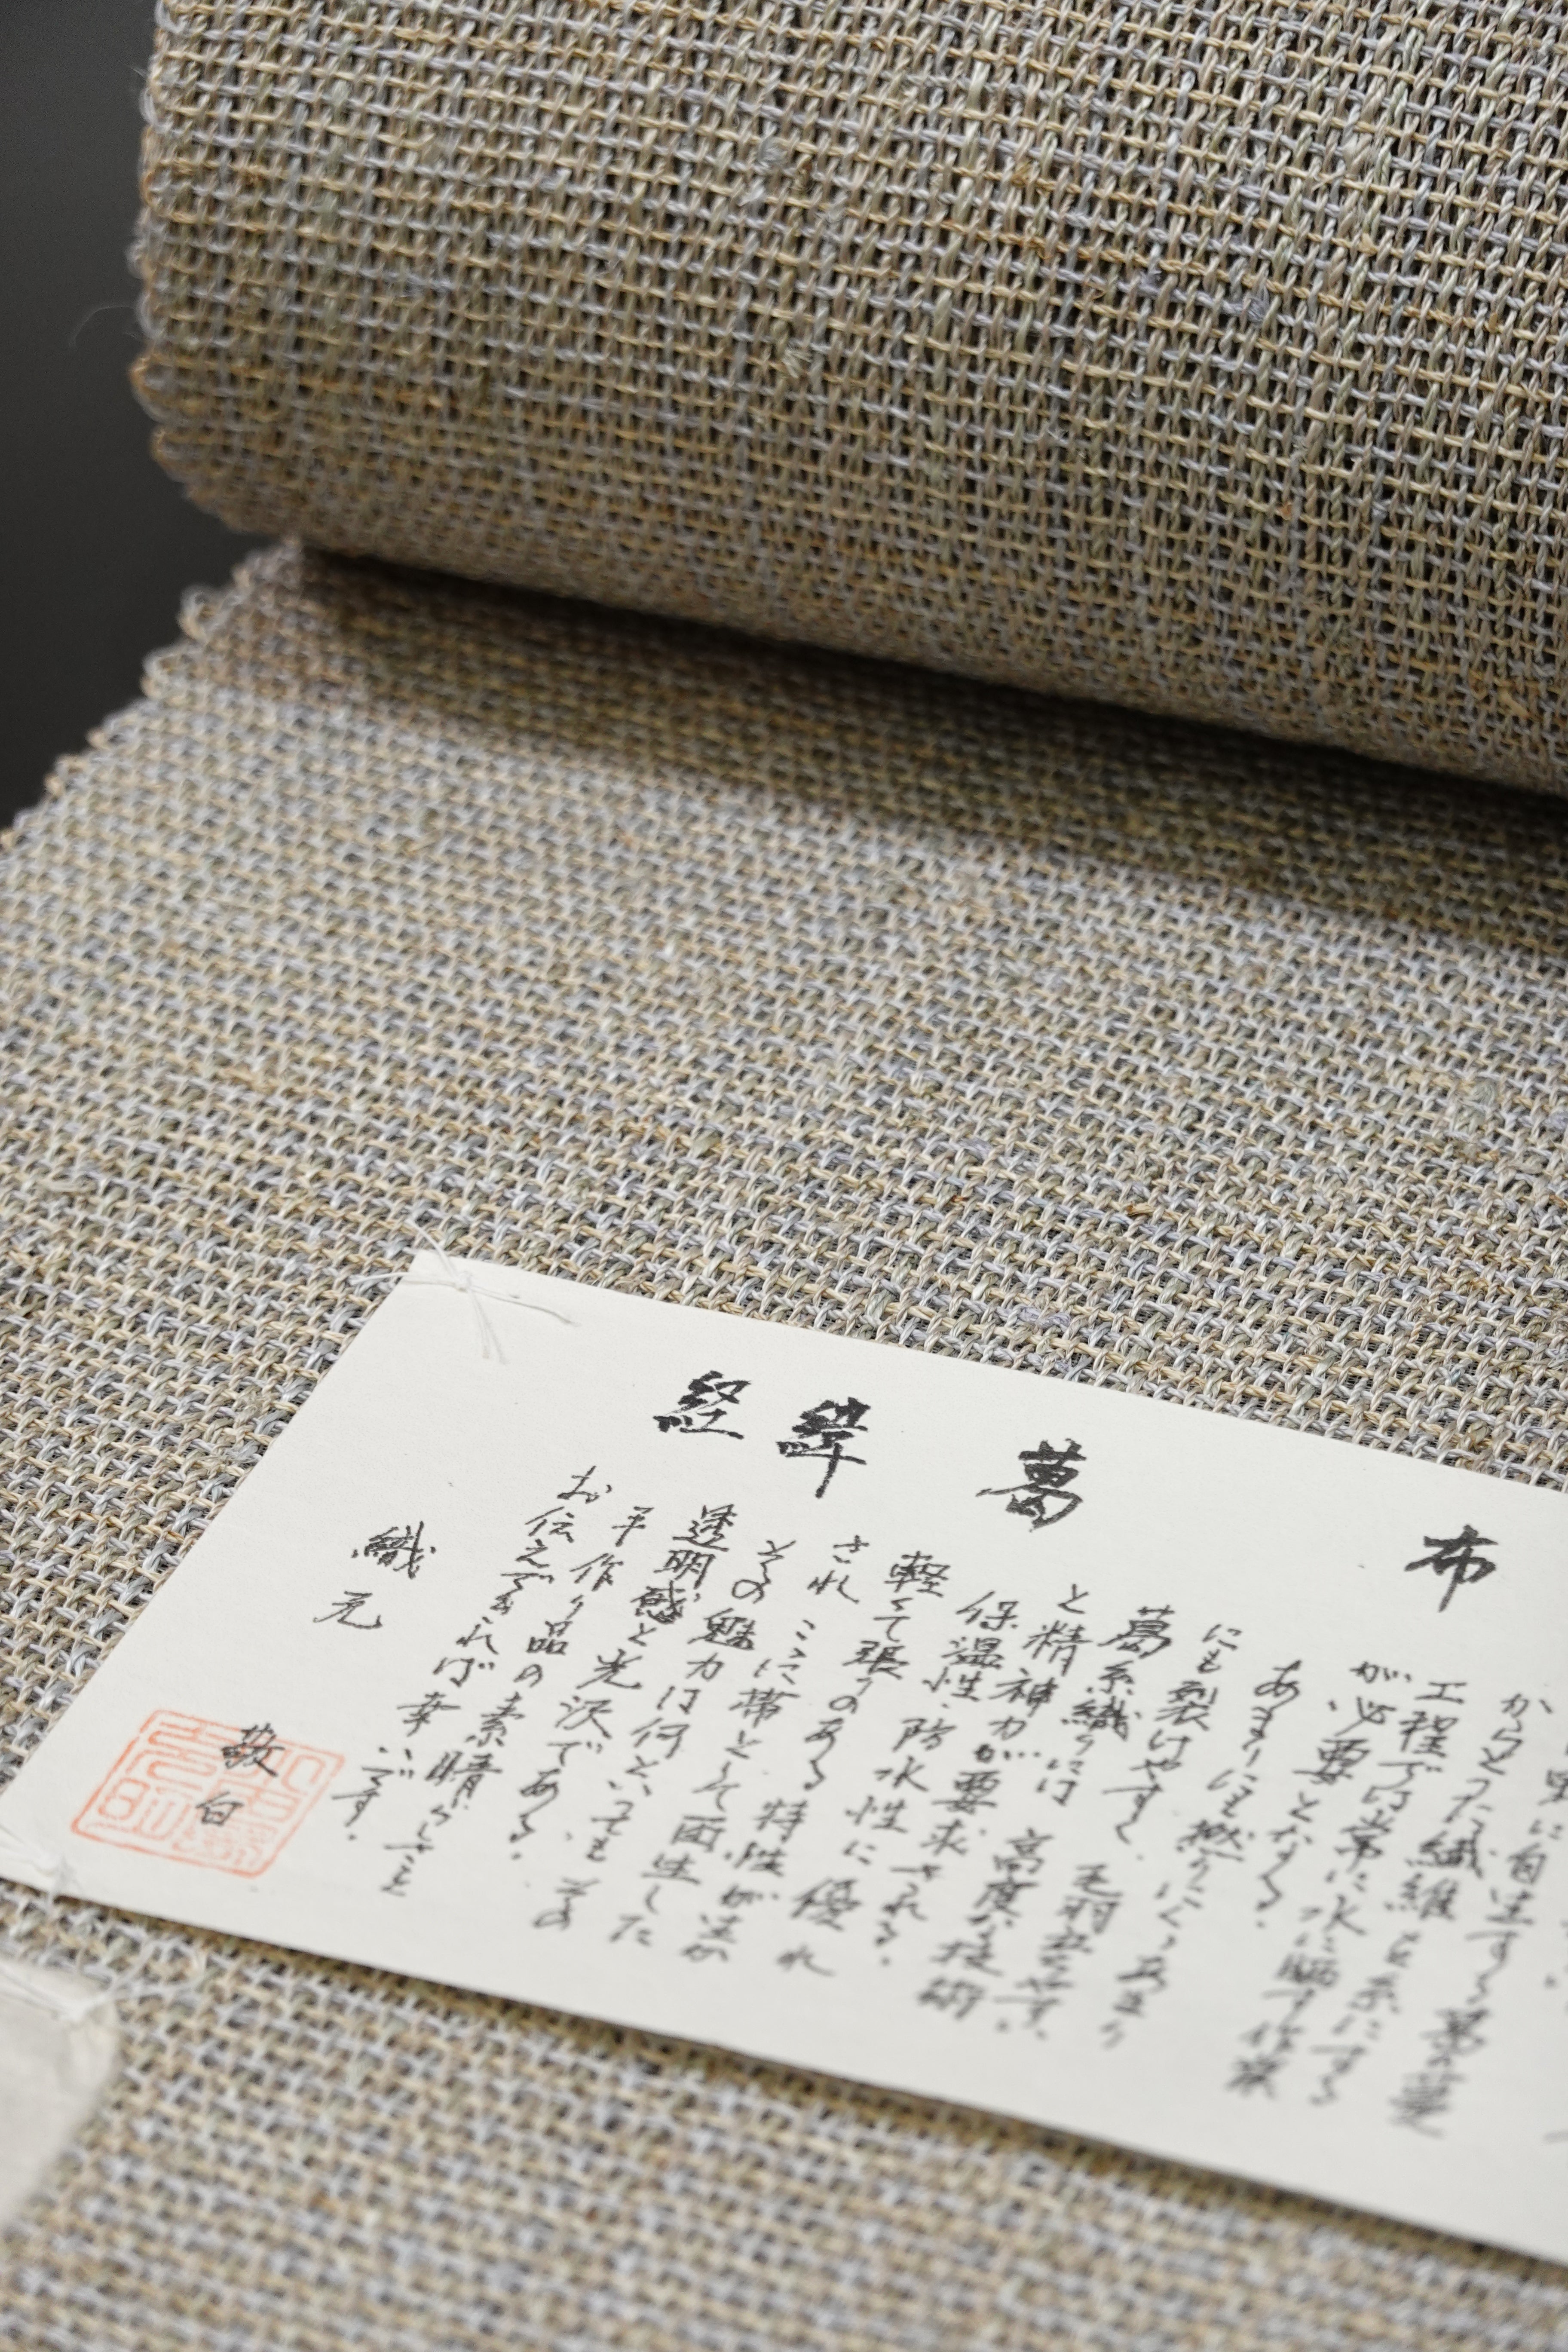 経緯葛布
野に自生する葛の蔓
からとった繊維を糸にする
工程では常に水に晒す作業
が必要となる。
あまりにも撚りにくくあまり
にも裂けやすく、毛羽立やすい、
葛糸織りには高度な技術
と精神力が要求される。
保温性、防水性に優れ
軽くて張りのある特性が活か
されここに帯として再生した
その魅力は何といっても、その
透明感と光沢である。
手作り品の素晴らしさを
お伝えできれば幸いです。
織元
敬白